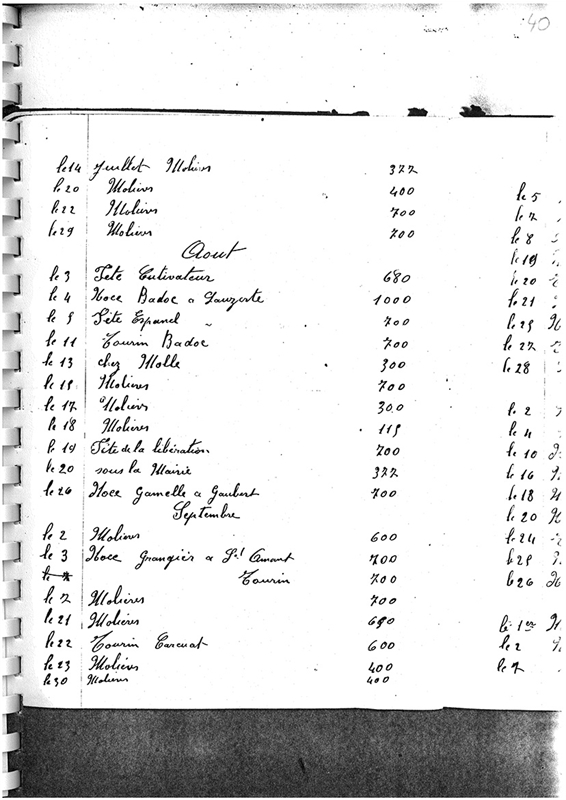 40
le 14 juillet Molières 377
le 20 Molières 400
le 22 Molières 700
le 29 Molières 700
Aout
le 3 Fête Cutivateur 680
le 4 Noce Badoc a Lauzerte 1000
le 5 Fête Espanel 700
le 11 Tourin Badoc 700
le 13 chez Molle 300
le 15 Molières 700
le 17 Molières 300
le 18 Molières 115
le 19 Fête de la libération 700
le 20 sous la Mairie 377
le 26 Noce Gamelle a Gaubert 700
Septembre
le 2 Molières 600
le 3 Noce Grangiér a St Amant 700
Tourin 700
le 7 Molières 700
le 21 Molières 650
le 22 Tourin 600
le 23 Molières 400
le 30 Molières 400
le 5
le 7
le 8
le 19
le 20
le 21
le 25
le 27
le 28
le 2
le 4
le 10
le 16
le 18
le 20
le 24
le 25
le 26
le 1er
le 2
le 7